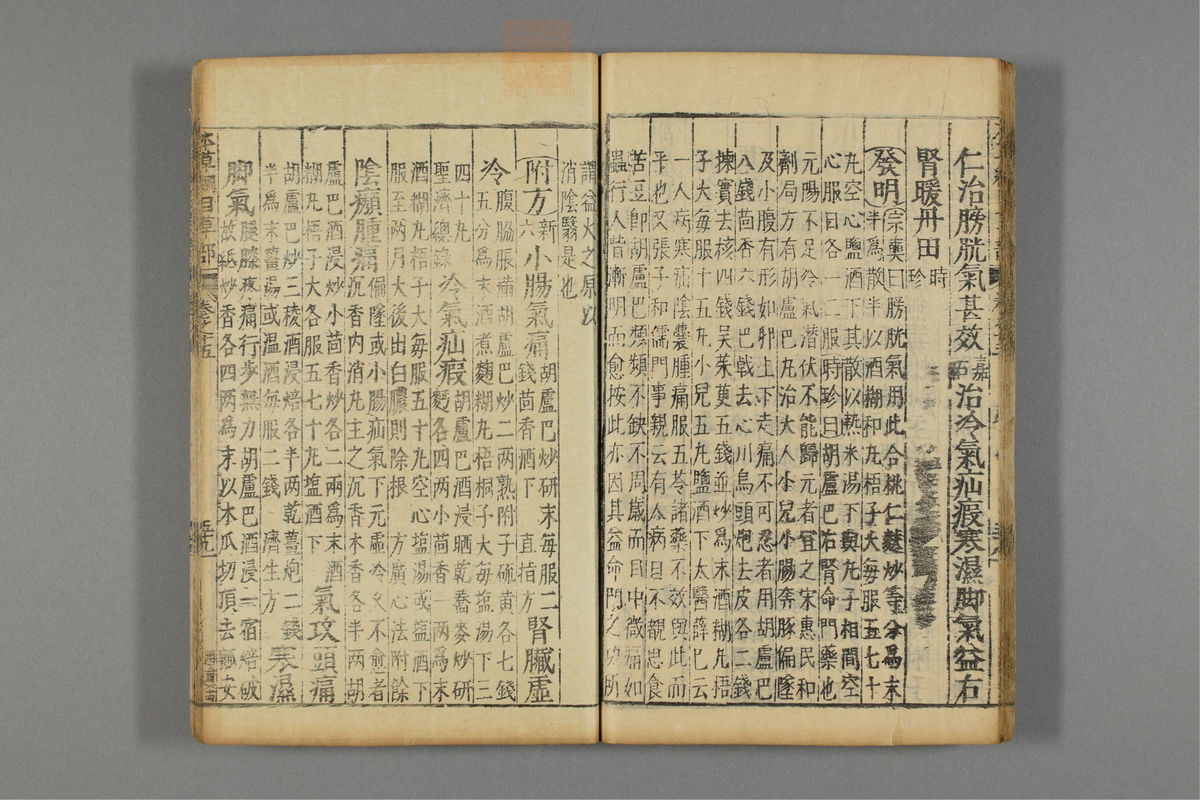 仁治膀胱氣甚效嘉祐治冷氣疝瘕寒濕脚氣益右
腎暖丹田時珍
發明宗奭曰膀胱氣用此合桃仁麩炒等分爲末
半爲散半以酒糊和丸梧子大每服五七十
丸空心鹽酒下其散以熱米湯下與丸子相間空
心服日各一二服時珍曰胡盧巴右腎命門藥也
元陽不足冷氣潛伏不能歸元者宜之宋惠民和
劑局方有胡盧巴丸治大人小兒小腸奔豚偏墜
及小腹有形如卵上下走痛不可忍者用胡盧巴
八錢茴香六錢巴戟去心川烏頭炮去皮各二錢
揀實去核四錢吳茱萸五錢並炒爲末酒糊丸梧
子大每服十五丸小兒五丸鹽酒下太醫薛巳云
一人病寒疝陰囊腫痛服五苓諸藥不效與此而
平也又張子和儒門事親云有人病目不覩思食
苦豆卽胡盧巴頻頻不缺不周歲而目中微痛如
蟲行入眥漸明而愈按此亦因其益命門之功所
謂益火之原以
消陰翳是也
附方新六小腸氣痛胡盧巴炒研末每服二
錢茴香酒下 直指方腎臟虛
冷腹脇脹滿胡盧巴炒二兩熟附子硫黄各七錢
五分爲末酒煮麴糊丸梧桐子大每塩湯下三
四十丸
聖濟總錄冷氣疝瘕胡盧巴酒浸晒乾蕎麥炒研
麪各四兩小茴香一兩爲末
酒糊丸梧子大每服五十丸空心塩湯或塩酒下
服至兩月大後出白膿則除根 方廣心法附餘
陰㿗腫痛偏墜或小腸疝氣下元虛冷久不愈者
沉香內消丸主之沉香木香各半兩胡
盧巴酒浸炒小茴香炒各二兩爲末酒
糊丸梧子大各服五七十丸塩酒下氣攻頭痛
胡盧巴炒三稜酒浸焙各半兩乾薑炮二錢
半爲末薑湯或溫酒每服二錢 濟生方寒濕
脚氣腿膝疼痛行步無力胡盧巴酒浸一宿焙破
故紙炒香各四兩爲末以木瓜切頂去瓤安
本草綱目草部
卷之十五
五九